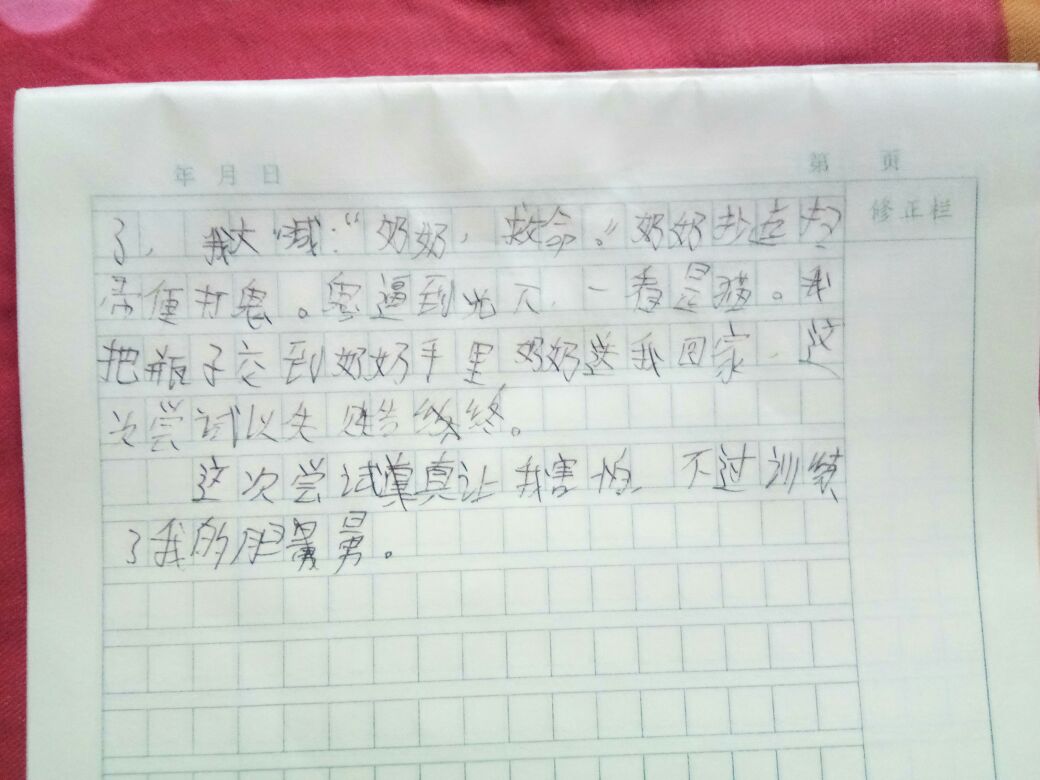 年 月 日
第 页
修正栏
了，我大喊：“奶奶，救命。”奶奶抄起
便打鬼。鬼逼到光下，一看是猫。我
把瓶子交到奶奶手里 奶奶送我回家 这
次尝试以失败告终。
这次尝试真让我害怕，不过训练
了我的胆量。